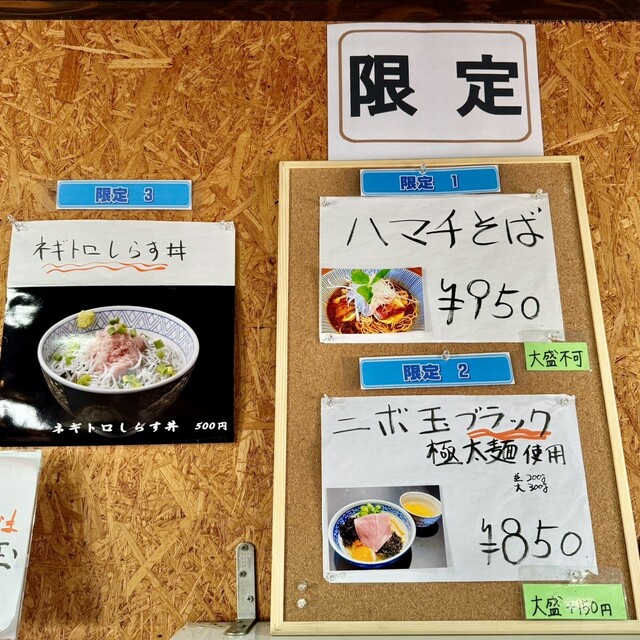 限定
限定 1
ハマチそば
¥950
大盛不可
限定 2
ニボ玉ブラック
極太麺使用
並200g
大300g
¥850
大盛 ¥950円
限定 3
ネギトロしらす丼
ネギトロしらす丼 500円